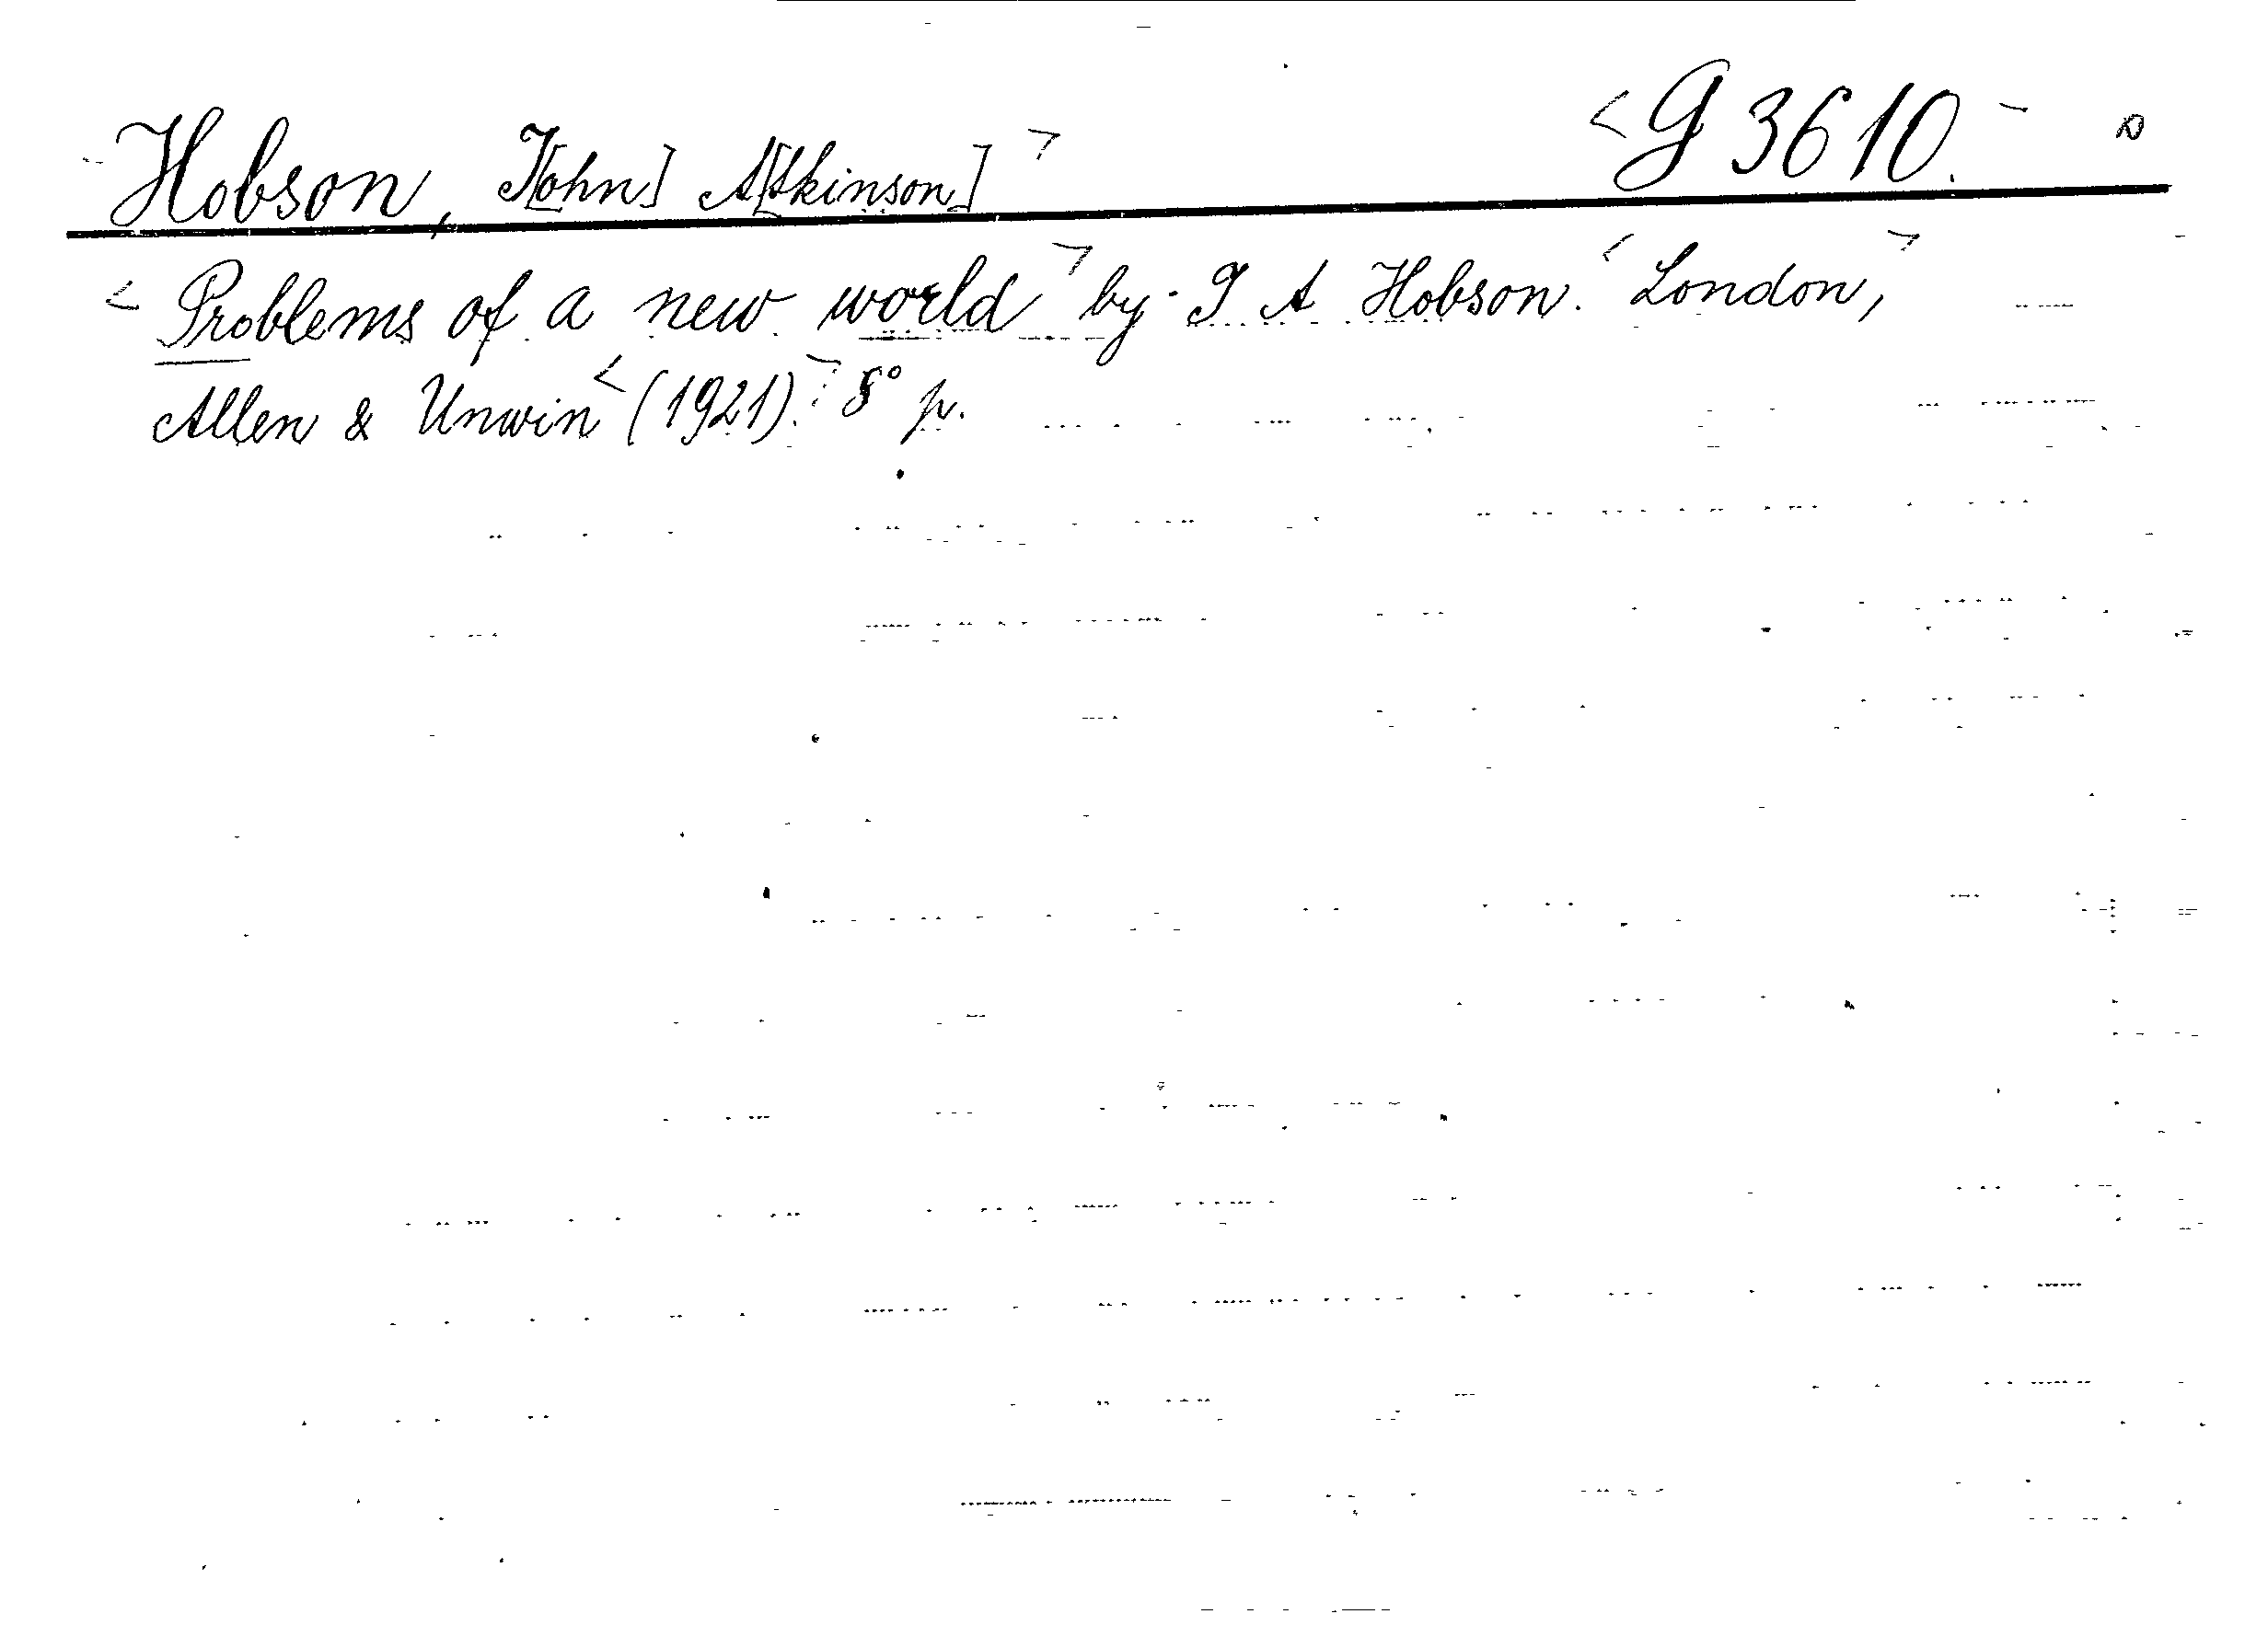 Hobson, J[ohn] A[tkinson] G 3610.
Problems of a new world by J A Hobson. London,
Allen & Unwin (1921). 8° p.